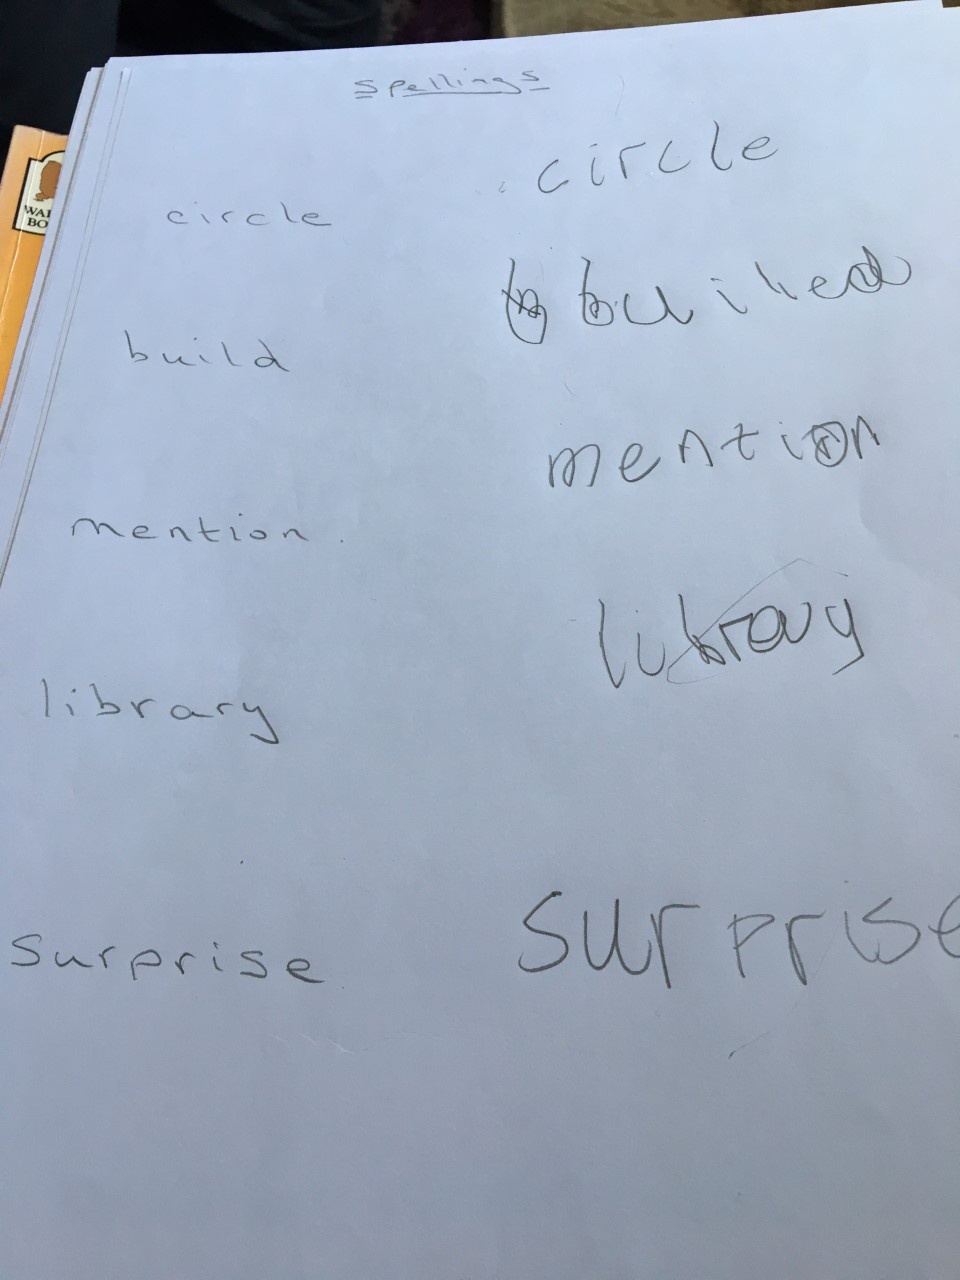 Spellings
circle circle
build builed
mention mention
library
surprise surprise